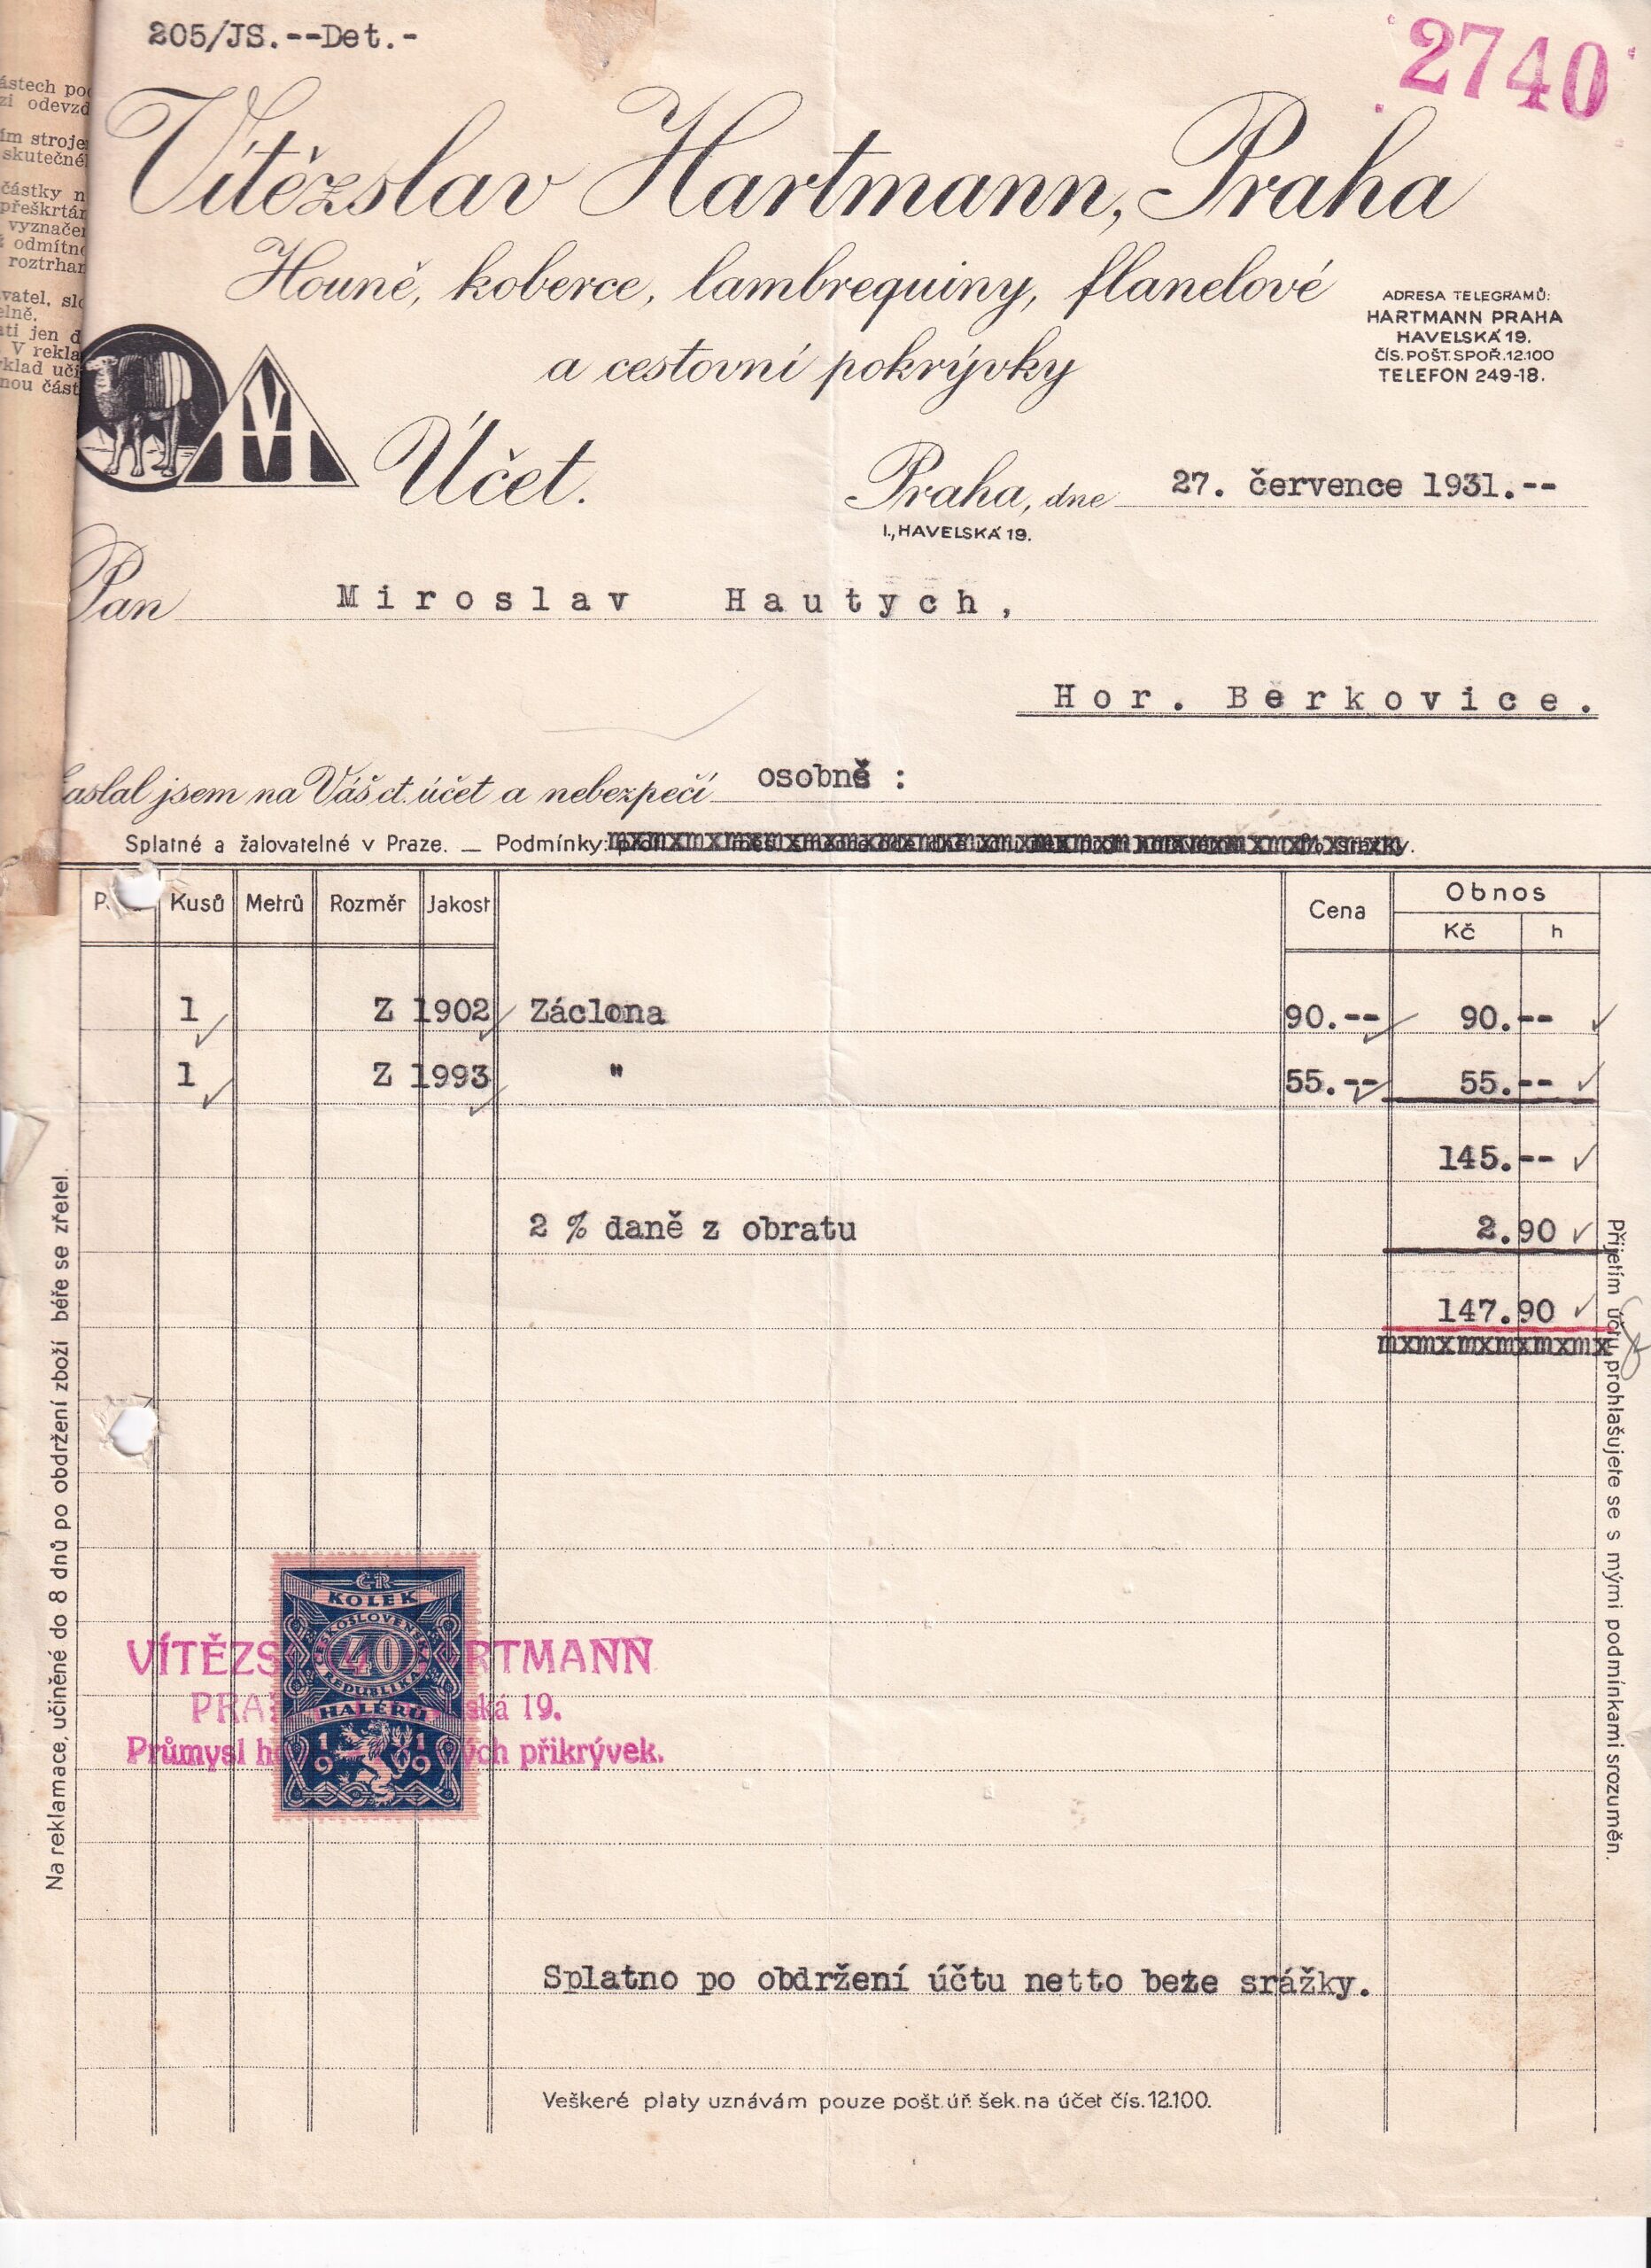 205/JS.--Det.-
2740
ástech po
zi odevzd
ím stroje
skutečné
částky n
přeškrtá
vyznače
odmítn
roztrha
vatel, slo
elně.
ti jen d
V rekla
klad uči
nou část
Vítězslav Hartmann, Praha
Houně, koberce, lambrequiny, flanelové
a cestovní pokrývky
ADRESA TELEGRAMŮ:
HARTMANN PRAHA
HAVELSKÁ 19.
ČÍS. POŠT. SPOŘ. 12.100
TELEFON 249-18.
Účet.
Praha, dne 27. července 1931.--
I., HAVELSKÁ 19.
Pan Miroslav Hautych,
Hor. Berkovice.
aslal jsem na Váš ct. účet a nebezpečí osobně :
Splatné a žalovatelné v Praze. — Podmínky:
Kusů Metrů Rozměr Jakost Cena Obnos
Kč h
1 Z 1902 Záclona 90.-- 90.--
1 Z 1993 " 55.-- 55.--
145.--
2 % daně z obratu 2.90
147.90
mxmxmxmxmxmx
Na reklamace, učiněné do 8 dnů po obdržení zboží béře se zřetel.
Přijetím účtu prohlašujete se s mými podmínkami srozuměn.
ČR
KOLEK
ČESKOSLOVENSKÁ
40
REPUBLIKA
HALÉŘŮ
1919
VÍTĚZS RTMANN
PRA ská 19.
Průmysl h ých přikrývek.
Splatno po obdržení účtu netto beze srážky.
Veškeré platy uznávám pouze pošt. úř. šek. na účet čís. 12.100.